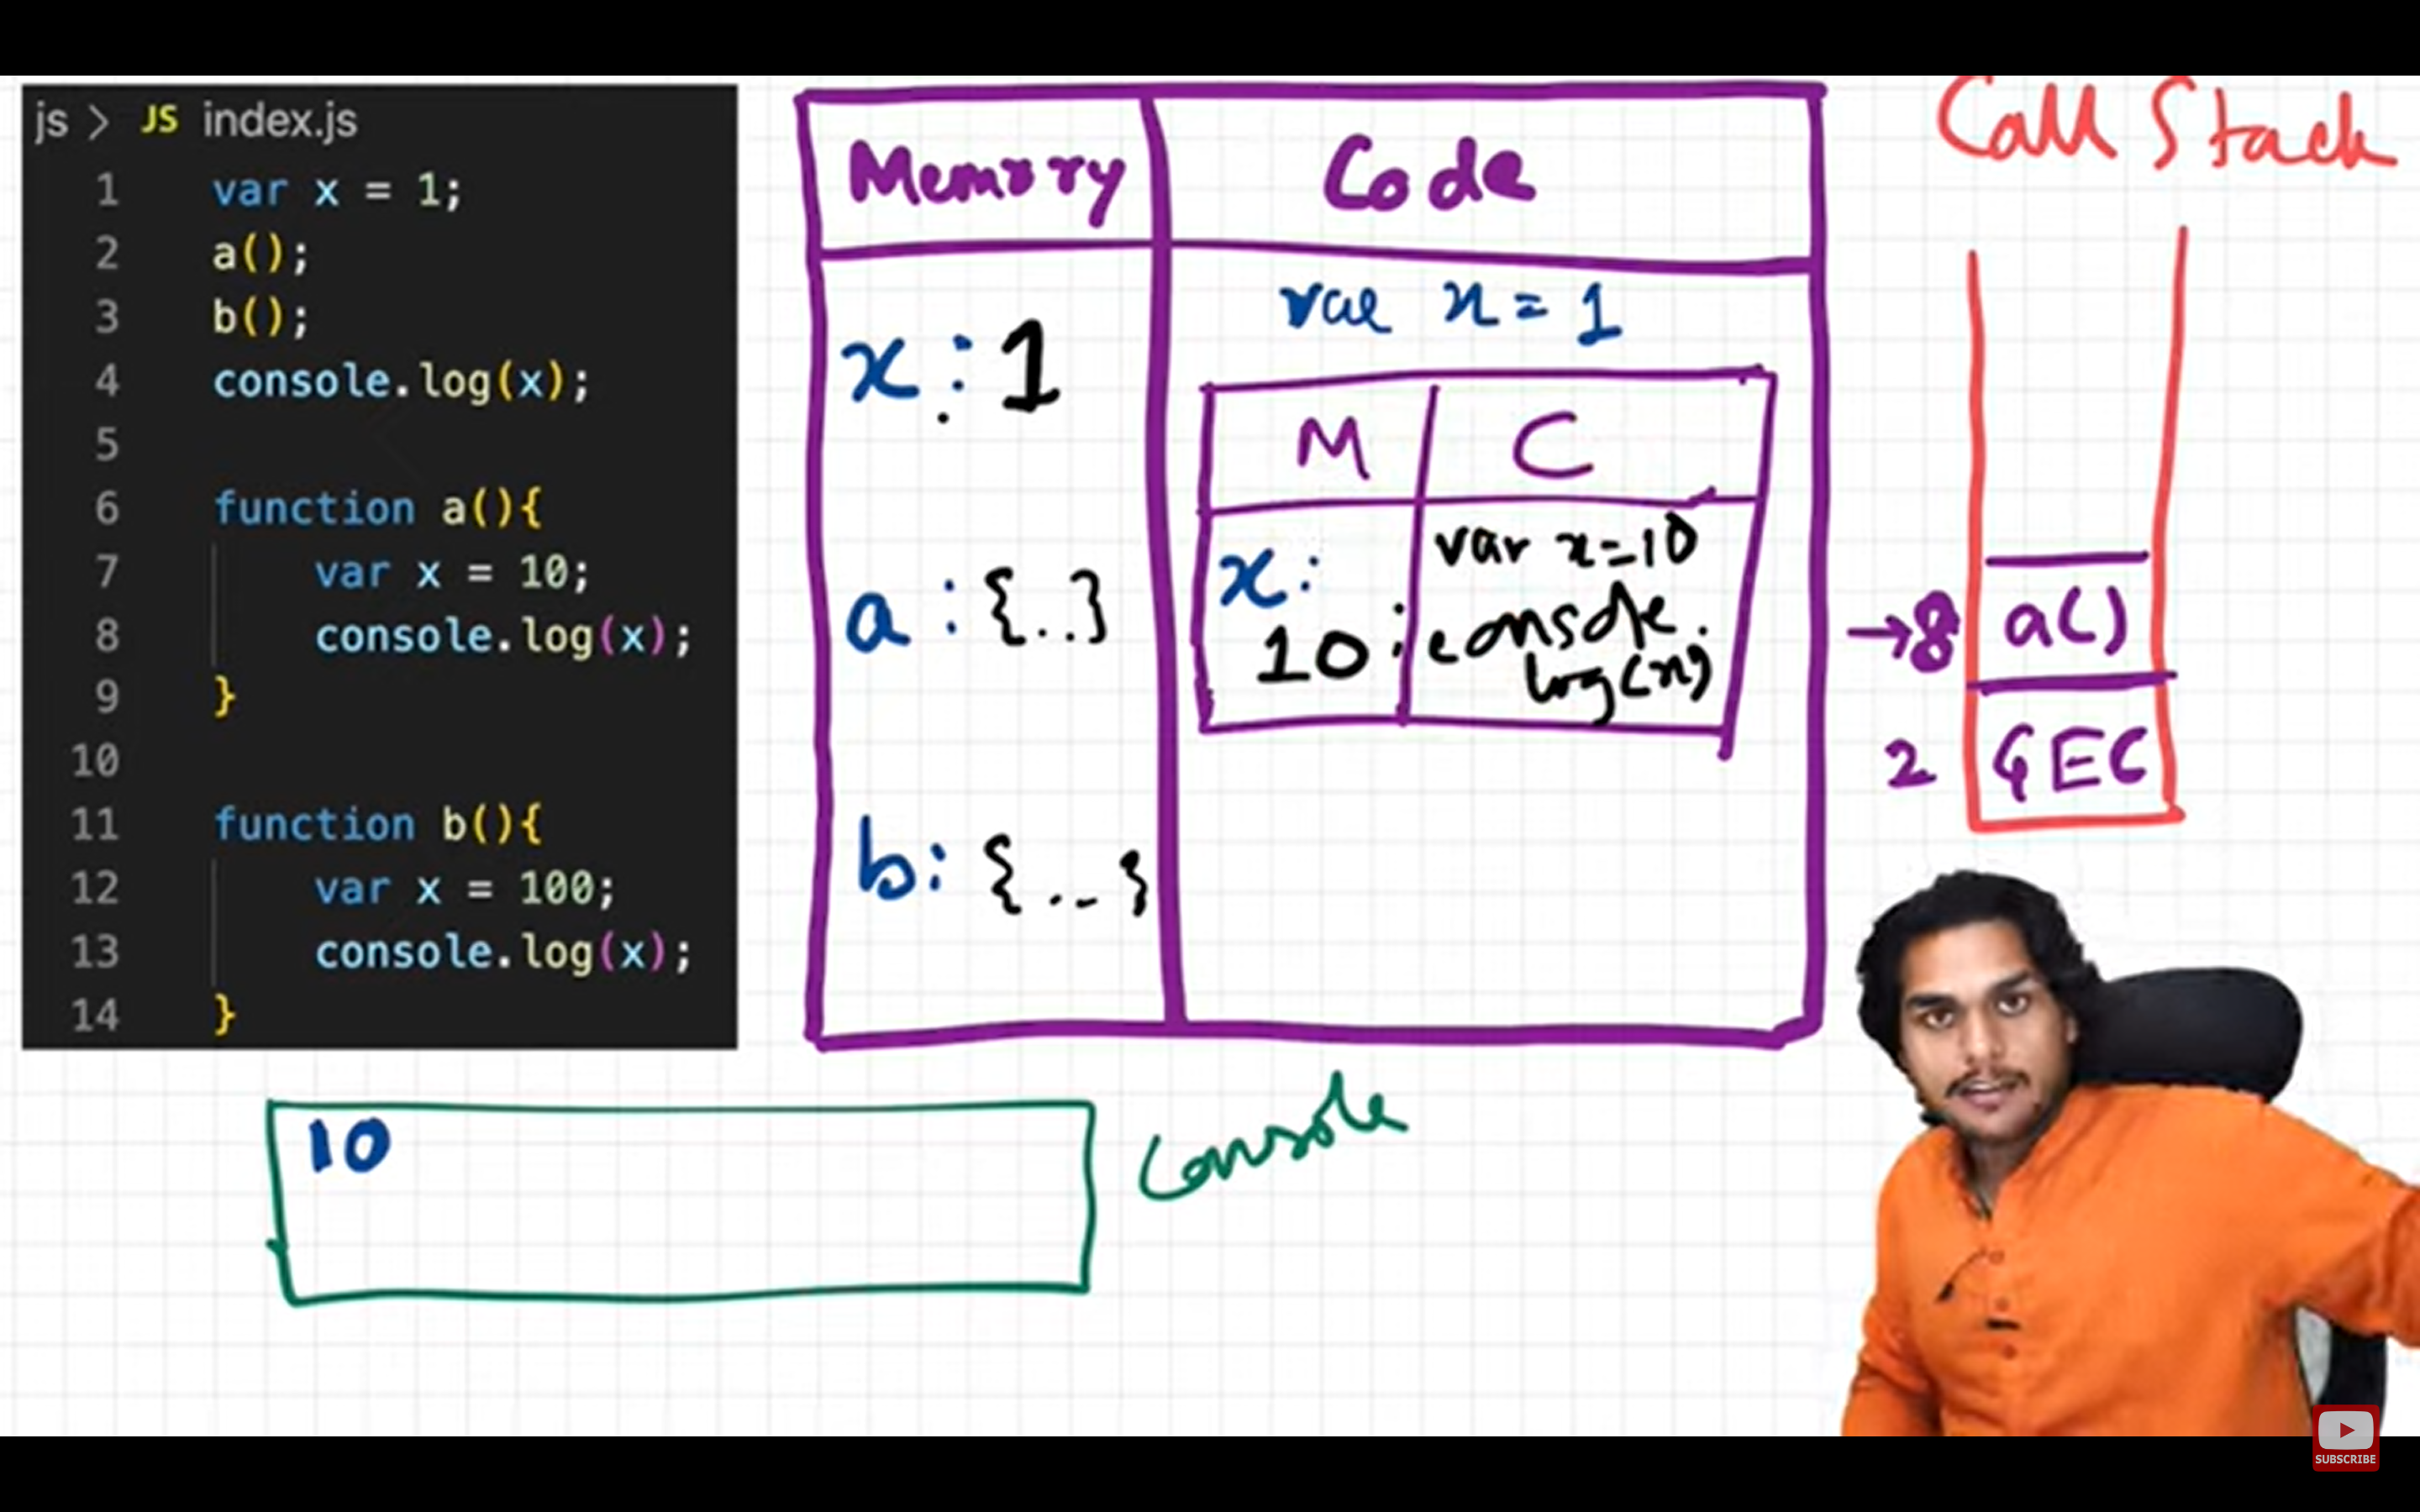 js > JS index.js
1 var x = 1;
2 a();
3 b();
4 console.log(x);
5
6 function a(){
7 var x = 10;
8 console.log(x);
9 }
10
11 function b(){
12 var x = 100;
13 console.log(x);
14 }
Memory
Code
x : 1
a : {..}
b : {..}
var x = 1
M
C
x :
10
var x=10
console.
log(x)
Call Stack
→8
a()
2
GEC
10
Console
SUBSCRIBE